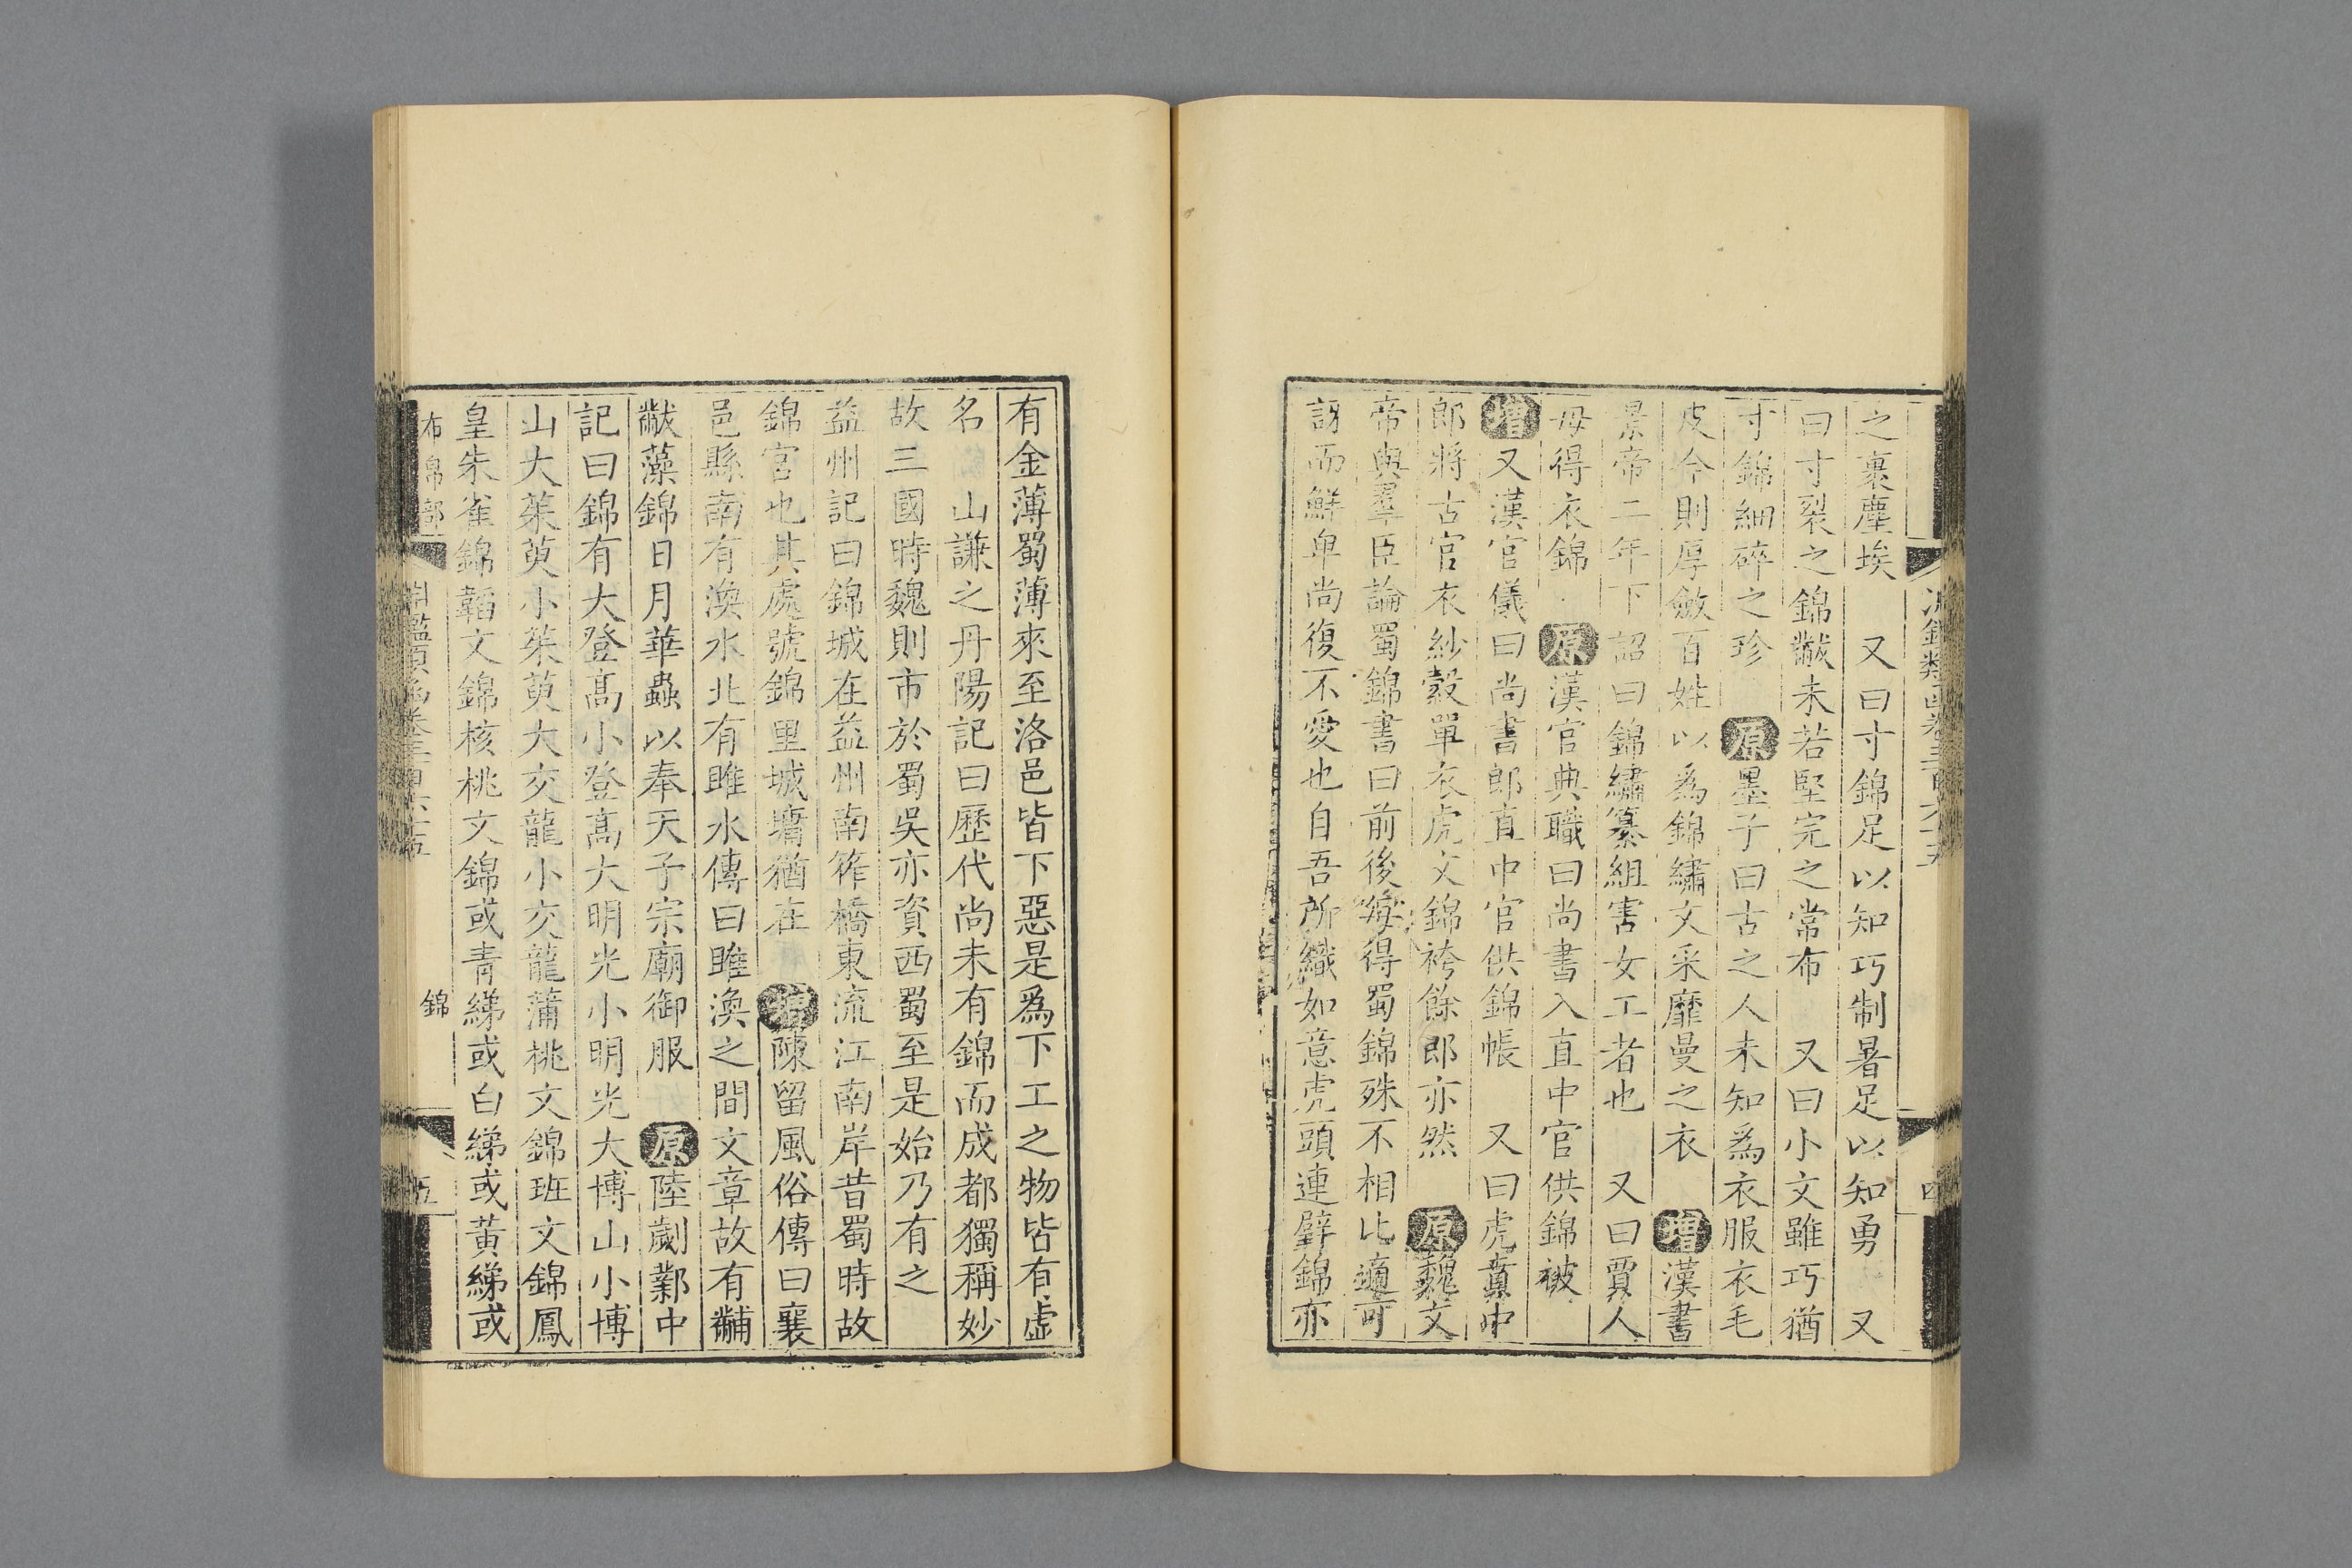 之裹塵埃　又曰寸錦足以知巧制暑足以知勇　又
曰寸裂之錦黻未若堅完之常布　又曰小文雖巧猶
寸錦細碎之珍　原墨子曰古之人未知爲衣服衣毛
皮今則厚斂百姓以爲錦繡文采靡曼之衣　增漢書
景帝二年下詔曰錦繡纂組害女工者也　又曰賈人
毋得衣錦　原漢官典職曰尚書入直中官供錦被
增又漢官儀曰尚書郎直中官供錦帳　又曰虎賁中
郎將古官衣紗縠單衣虎文錦袴餘郎亦然　原魏文
帝與羣臣論蜀錦書曰前後每得蜀錦殊不相比適可
訝而鮮卑尚復不愛也自吾所織如意虎頭連璧錦亦
有金薄蜀薄來至洛邑皆下惡是爲下工之物皆有虛
名　山謙之丹陽記曰歷代尚未有錦而成都獨稱妙
故三國時魏則市於蜀吳亦資西蜀至是始乃有之
益州記曰錦城在益州南筰橋東流江南岸昔蜀時故
錦官也其處號錦里城墉猶在　增陳留風俗傳曰襄
邑縣南有渙水北有睢水傳曰睢渙之間文章故有黼
黻藻錦日月華蟲以奉天子宗廟御服　原陸翽鄴中
記曰錦有大登高小登高大明光小明光大博山小博
山大茱萸小茱萸大交龍小交龍蒲桃文錦班文錦鳳
皇朱雀錦韜文錦核桃文錦或青綈或白綈或黃綈或
布帛部
錦
五